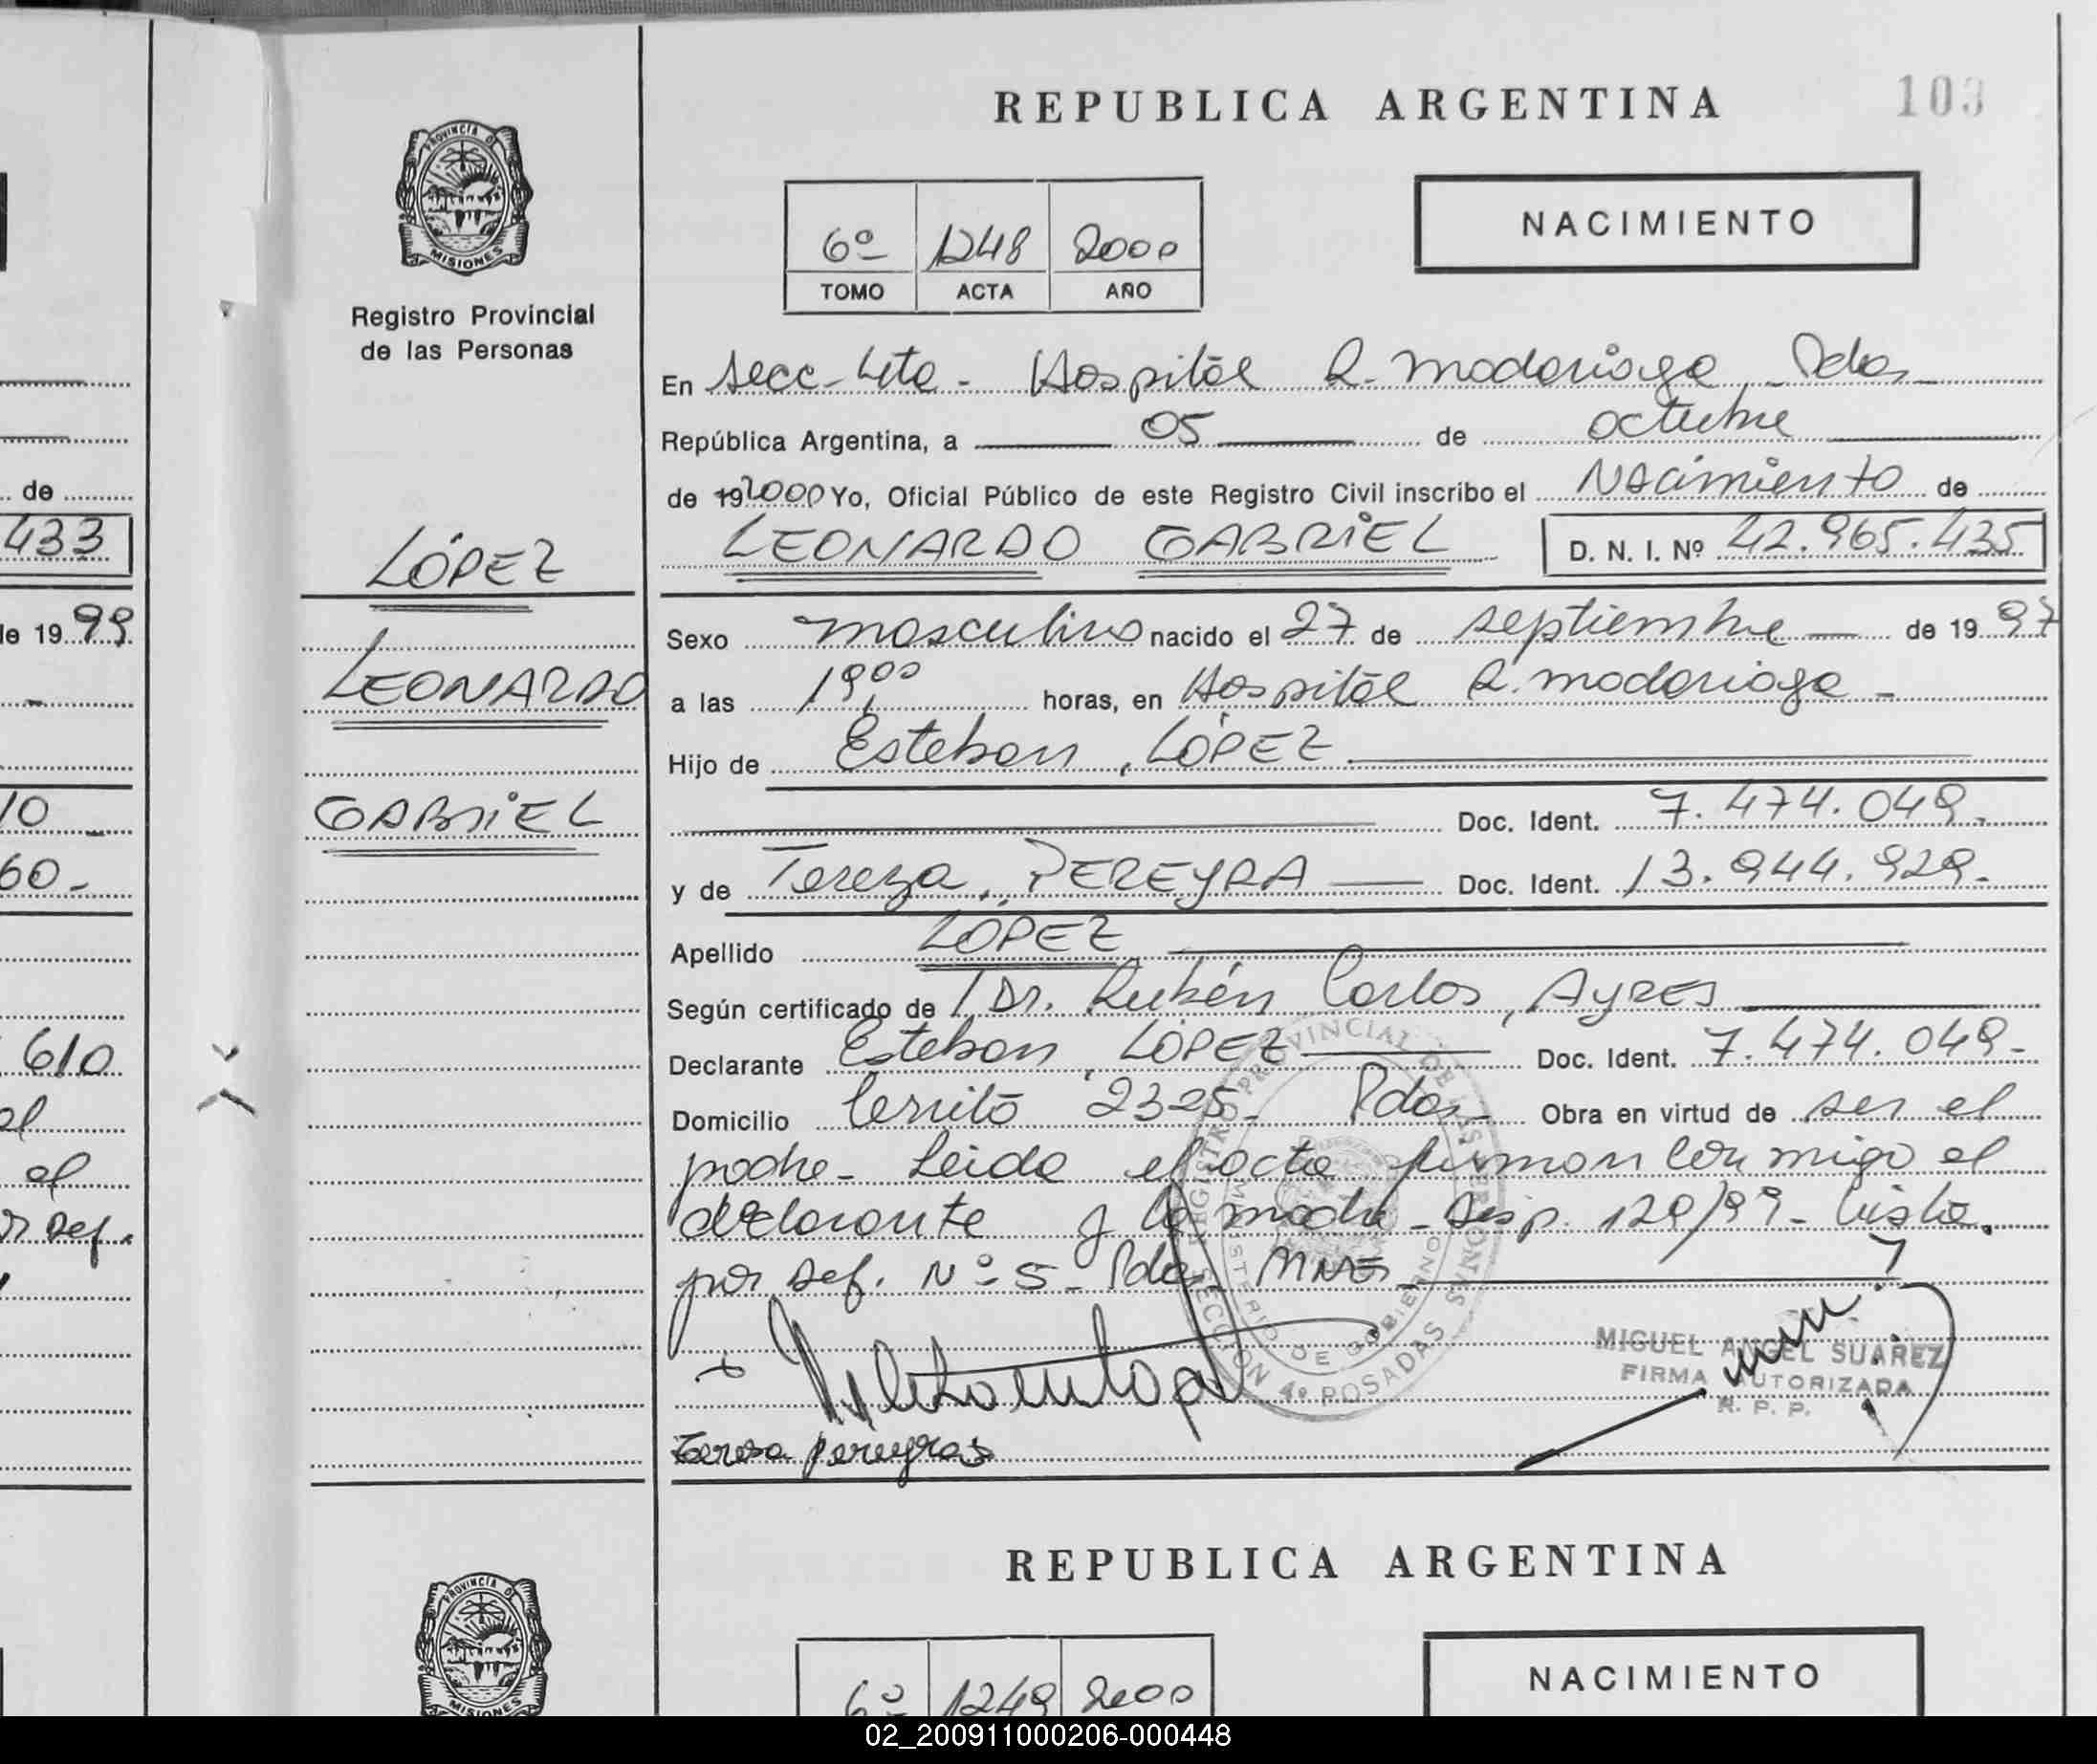 REPUBLICA ARGENTINA
103
PROVINCIA DE
MISIONES
Registro Provincial
de las Personas
6º 1248 2000
TOMO ACTA AÑO
NACIMIENTO
En Secc. 4ta - Hospital R. Madariaga - Pdas
República Argentina, a 05 de octubre
de 192000 Yo, Oficial Público de este Registro Civil inscribo el Nacimiento de
LEONARDO GABRIEL D. N. I. Nº 42.965.435
LÓPEZ
LEONARDO
GABRIEL
Sexo masculino nacido el 27 de septiembre de 1997
a las 19,00 horas, en Hospital R. Madariaga -
Hijo de Esteban, LÓPEZ
Doc. Ident. 7.474.049.
y de Tereza, PEREYRA Doc. Ident. 13.944.929.
Apellido LÓPEZ
Según certificado de Dr. Rubén Carlos, Ayres
Declarante Esteban, LÓPEZ Doc. Ident. 7.474.049-
Domicilio Cerrito 2325- Pdas- Obra en virtud de ser el
padre- Leida el acta firman conmigo el
declarante y la madre - Disp. 120/99-
por Def. Nº 5- Pdas Mnes
REGISTRO PROVINCIAL DE LAS PERSONAS
MINISTERIO DE GOBIERNO
SECCION 4º POSADAS
MIGUEL ANGEL SUAREZ
FIRMA AUTORIZADA
R. P. P.
Teresa pereyras
de
433
de 1999
10
60-
610
el
el
Def.
REPUBLICA ARGENTINA
PROVINCIA DE
MISIONES
6º 1249 2000
NACIMIENTO
02_200911000206-000448